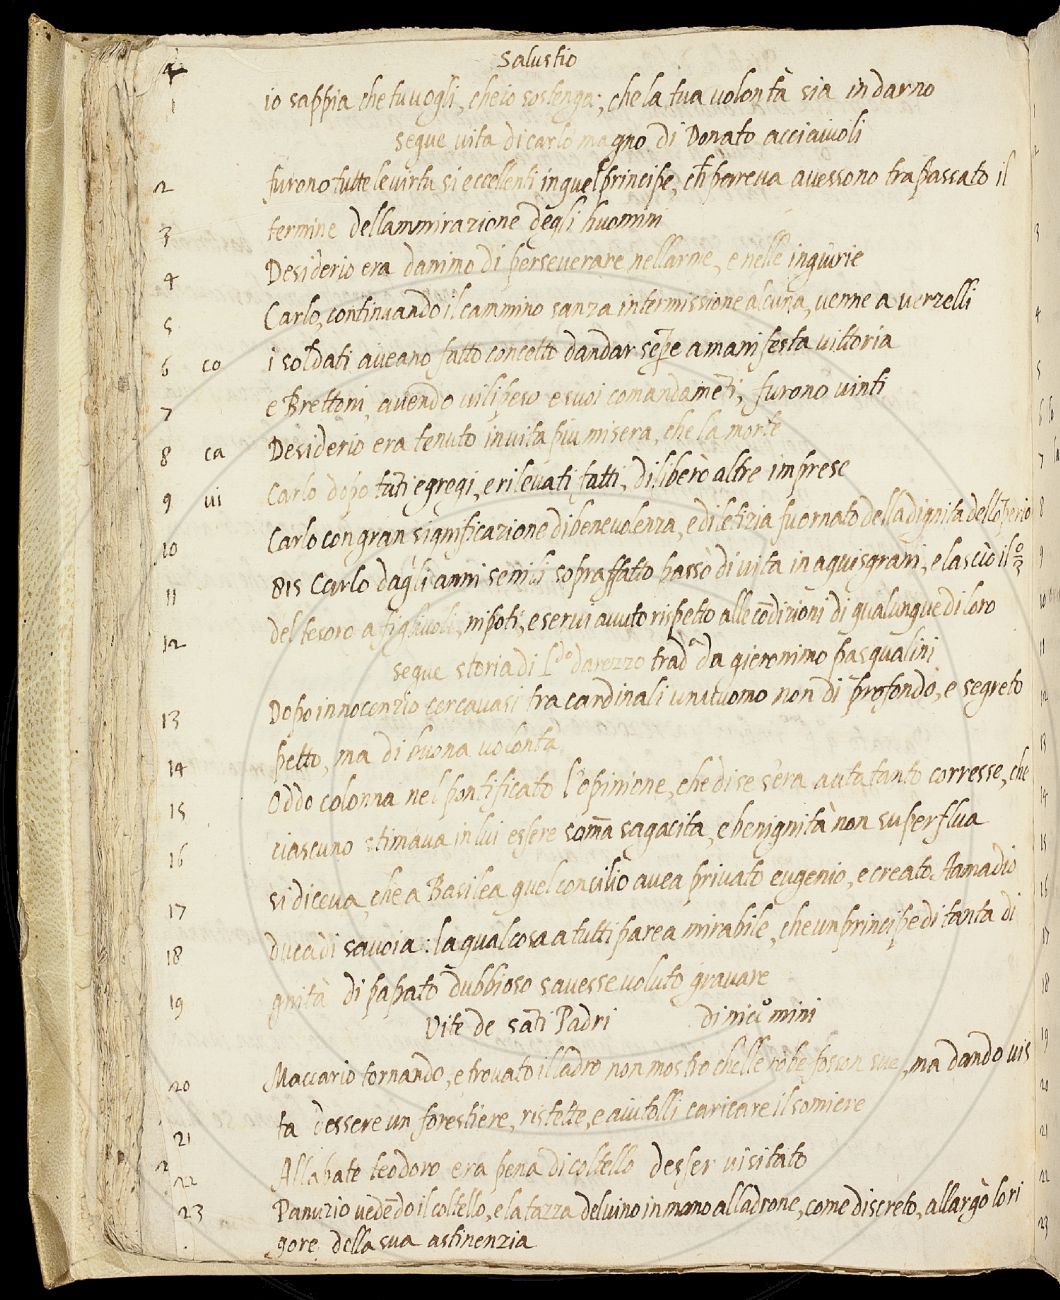 4 Salustio
1 io sappia che tu vogli, che io sostenga; che la tua volontà sia indarno
segue vita di carlo magno di Donato acciaiuoli
2 furono tutte le virtu si eccellenti in quel principe, ch̃ parreva avessono trapassato il
3 termine dellammirazione degli huomini
4 Desiderio era danimo di perseverare nellarme, e nelle ingiurie
5 Carlo, continuando il cammino sanza intermissione alcuna, venne a verzelli
6 co i soldati aveano fatto concetto dandar sep̃e a manifesta vittoria
7 e Brettoni, avendo vilipeso e suoi comandamẽti, furono vinti
8 ca Desiderio era tenuto in vita piu misera, che la morte
9 vi Carlo dopo tãti egregi, e rilevati fatti, dilberò altre imprese
10 Carlo con gran significazione di benevolenza, e di letizia fu ornato della dignita dello
11 815 Carlo dagli anni senili sopraffatto passò di vita in aquisgrani, e lasciò il
12 del tesoro a figliuoli, nipoti, e servi avuto rispetto alle cõdizioni di qualunque di loro
segue storia di darezzo trad da gieronimo pasqualini
13 Dopo innocenzio cercavasi fra cardinali un huomo non di profondo, e segreto
14 petto, ma di buona volonta
15 Oddo colonna nel pontificato l'opinione, che di se s'era avuta tanto corresse, che
16 ciascuno stimava in lui essere som̃a sagacita, e benignità non superflua
17 si diceva, che a Basilea quel concilio avea privato eugenio, e creato Amadio
18 duca di savoia: la qual cosa a tutti parea mirabile, che un principe di tanta di
19 gnità di papato dubbioso savesse voluto gravare
Vite de sãti Padri di
20 Maccario tornando, e trovato il ladro non mostro chelle robe fosson sue, ma dando vis
21 ta dessere un forestiere, ristette, e aiutolli caricare il somiere
22 Allabate teodoro era pena di coltello desser visitato
23 Panuzio vedẽdo il coltello, e la tazza del vino in mano alladrone, come discreto, allargò lo ri
gore della sua astinenzia